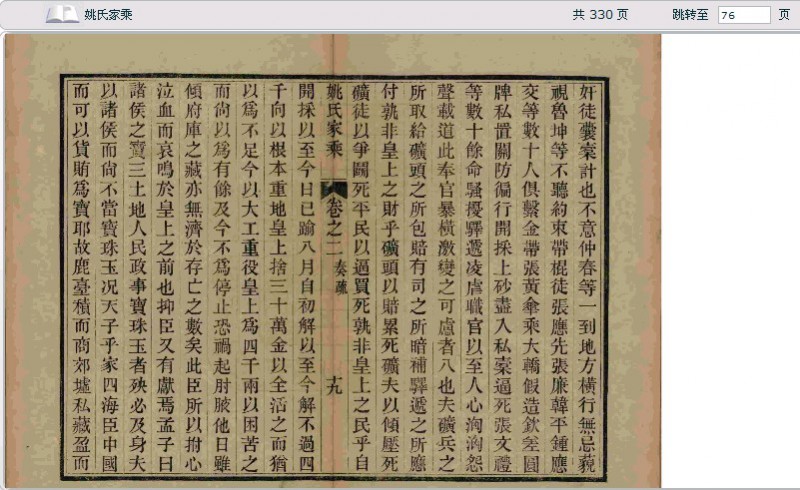 姚氏家乘
共 330 页
跳转至 76 页
奸徒囊橐計也不意仲春等一到地方橫行無忌藐
視魯坤等不聽約束帶棍徒張應先張廉韓平鍾應
交等數十人俱繫金帶張黃傘乘大轎假造欽差圓
牌私置關防徧行開採上砂盡入私橐逼死張文禮
等數十餘命騷擾驛遞凌虐職官以至人心洶洶怨
聲載道此奉官暴橫激變之可慮者八也夫礦兵之
所取給礦頭之所包賠有司之所暗補驛遞之所應
付孰非皇上之財乎礦頭以賠累死礦夫以傾壓死
礦徒以爭鬭死平民以逼買死孰非皇上之民乎自
姚氏家乘 卷之二 奏疏 十九
開採以至今日已踰八月自初解以至今解不過四
千向以根本重地皇上捨三十萬金以全活之而猶
以爲不足今以大工重役皇上爲四千兩以困苦之
而尚以爲有餘及今不爲停止恐禍起肘腋他日雖
傾府庫之藏亦無濟於存亡之數矣此臣所以拊心
泣血而哀鳴於皇上之前也抑臣又有獻焉孟子曰
諸侯之寶三土地人民政事寶珠玉者殃必及身夫
以諸侯而尚不當寶珠玉况天子乎家四海臣中國
而可以貨賄爲寶耶故鹿臺積而商郊墟私藏盈而